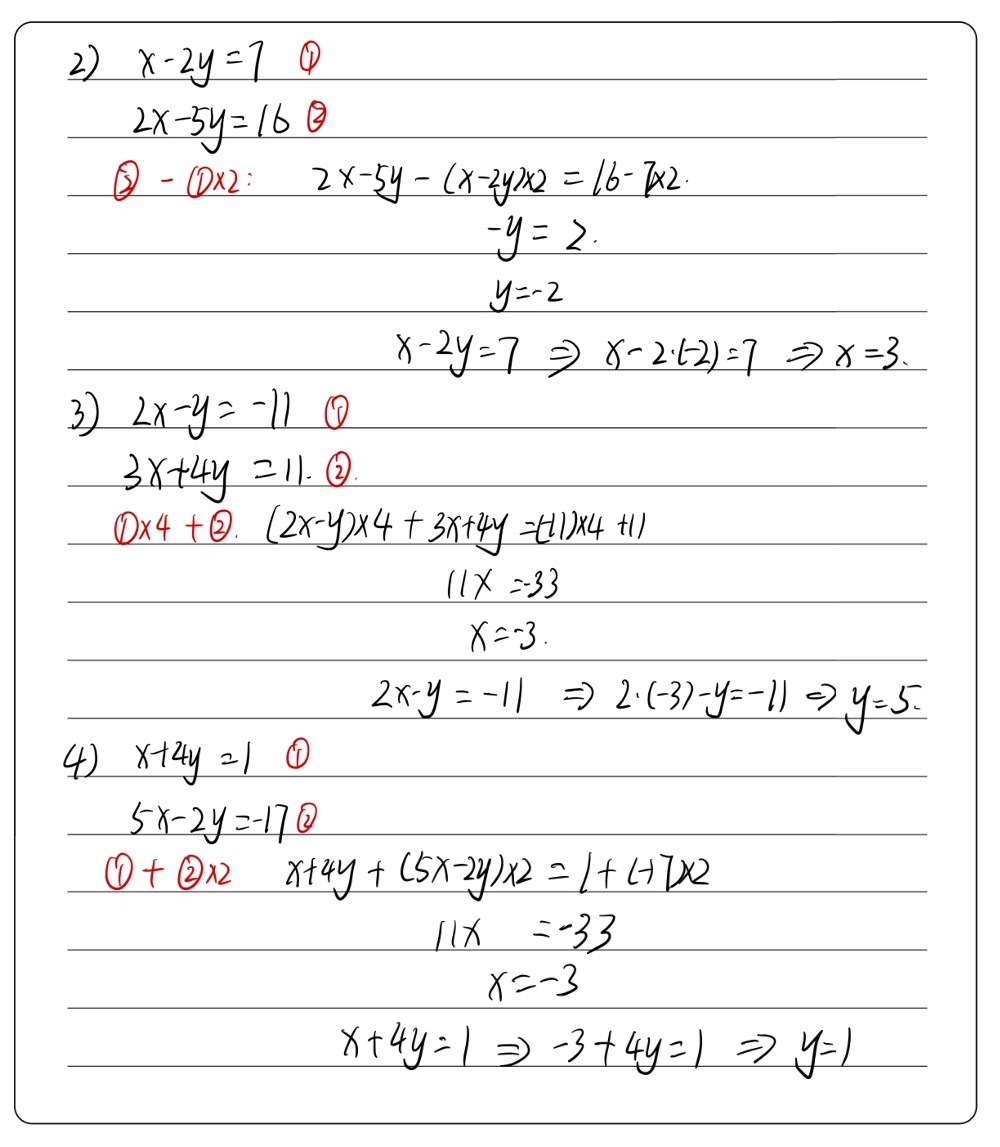 2) x-2y=7 ①
2x-5y=16 ②
② - ①×2: 2x-5y-(x-2y)×2=16-7×2.
-y=2.
y=-2
x-2y=7 ⇒ x-2·(-2)=7 ⇒ x=3.
3) 2x-y=-11 ①
3x+4y=11. ②.
①×4+②. (2x-y)×4+3x+4y=(-11)×4+11
11x=-33
x=-3.
2x-y=-11 ⇒ 2·(-3)-y=-11 ⇒ y=5.
4) x+4y=1 ①
5x-2y=-17 ②
①+②×2 x+4y+(5x-2y)×2=1+(-17)×2
11x=-33
x=-3
x+4y=1 ⇒ -3+4y=1 ⇒ y=1